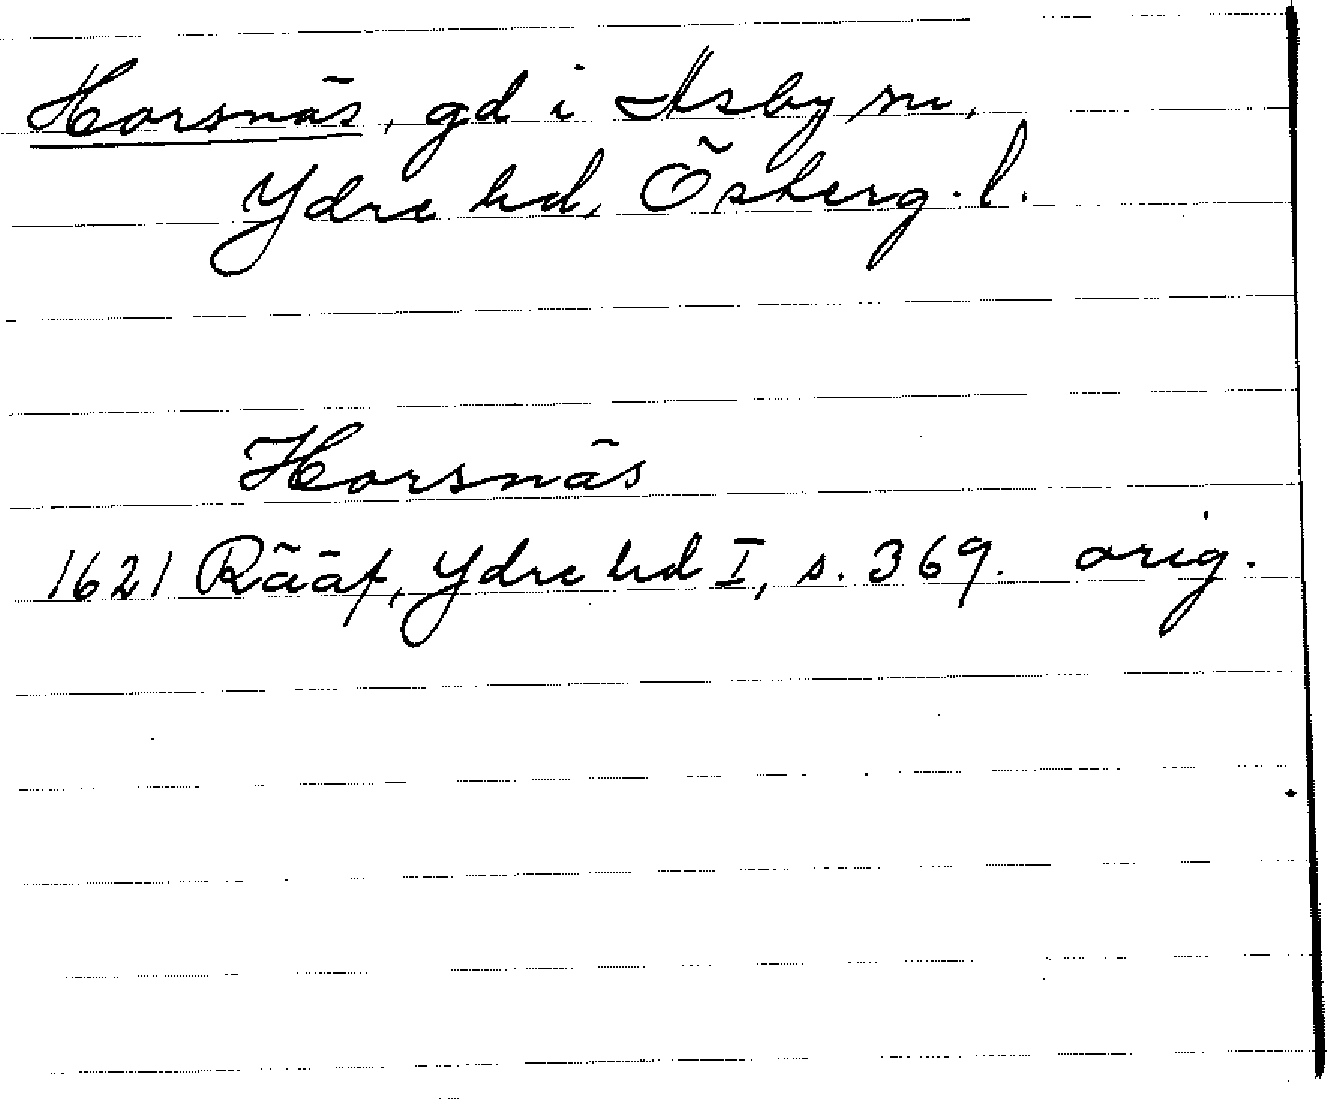 Horsnäs, gd i Asby sn,
Ydre hd, Österg. l.
Horsnäs
1621 Rääf, Ydre hd I, s. 369. orig.